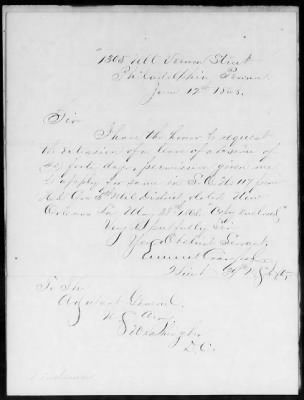 "1308 Mt Vernon Street
Philadelphia Penna
June 12th 1868.
Sir
I have the honor to request
the extension of a leave of absence of
forty days, permission given me
to apply for same in S.O. No 117 from
Hd Qrs 5th Mil District, dated New
Orleans La. May 28th 1868.
Very Respectfully Sir
Your Obedient Servant
To The
Adjutant General,
U S Army
Washington
D.C.